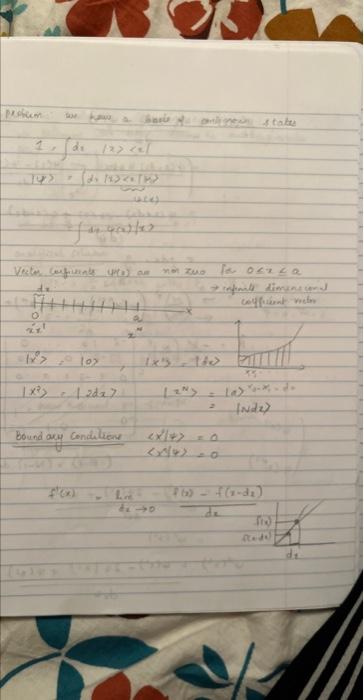 Problem: we have a basis of continuous states
1 = ∫dx |x> <x|
|ψ> = ∫dx |x> <x|ψ>
ψ(x)
∫dx ψ(x) |x>
Vector coefficients ψ(x) are non zero for 0 ≤ x ≤ a
→ infinite dimensional
coefficient vector
dx
0 a x
x⁰ x¹ xᴺ
|x⁰> = |0> , |x¹> = |dx>
|x²> = |2dx> |xᴺ> = |a>
= |Ndx>
Boundary Conditions <x⁰|ψ> = 0
<xᴺ|ψ> = 0
f'(x) = lim f(x) - f(x-dx)
dx→0 dx
f(x)
f(x-dx)
dx